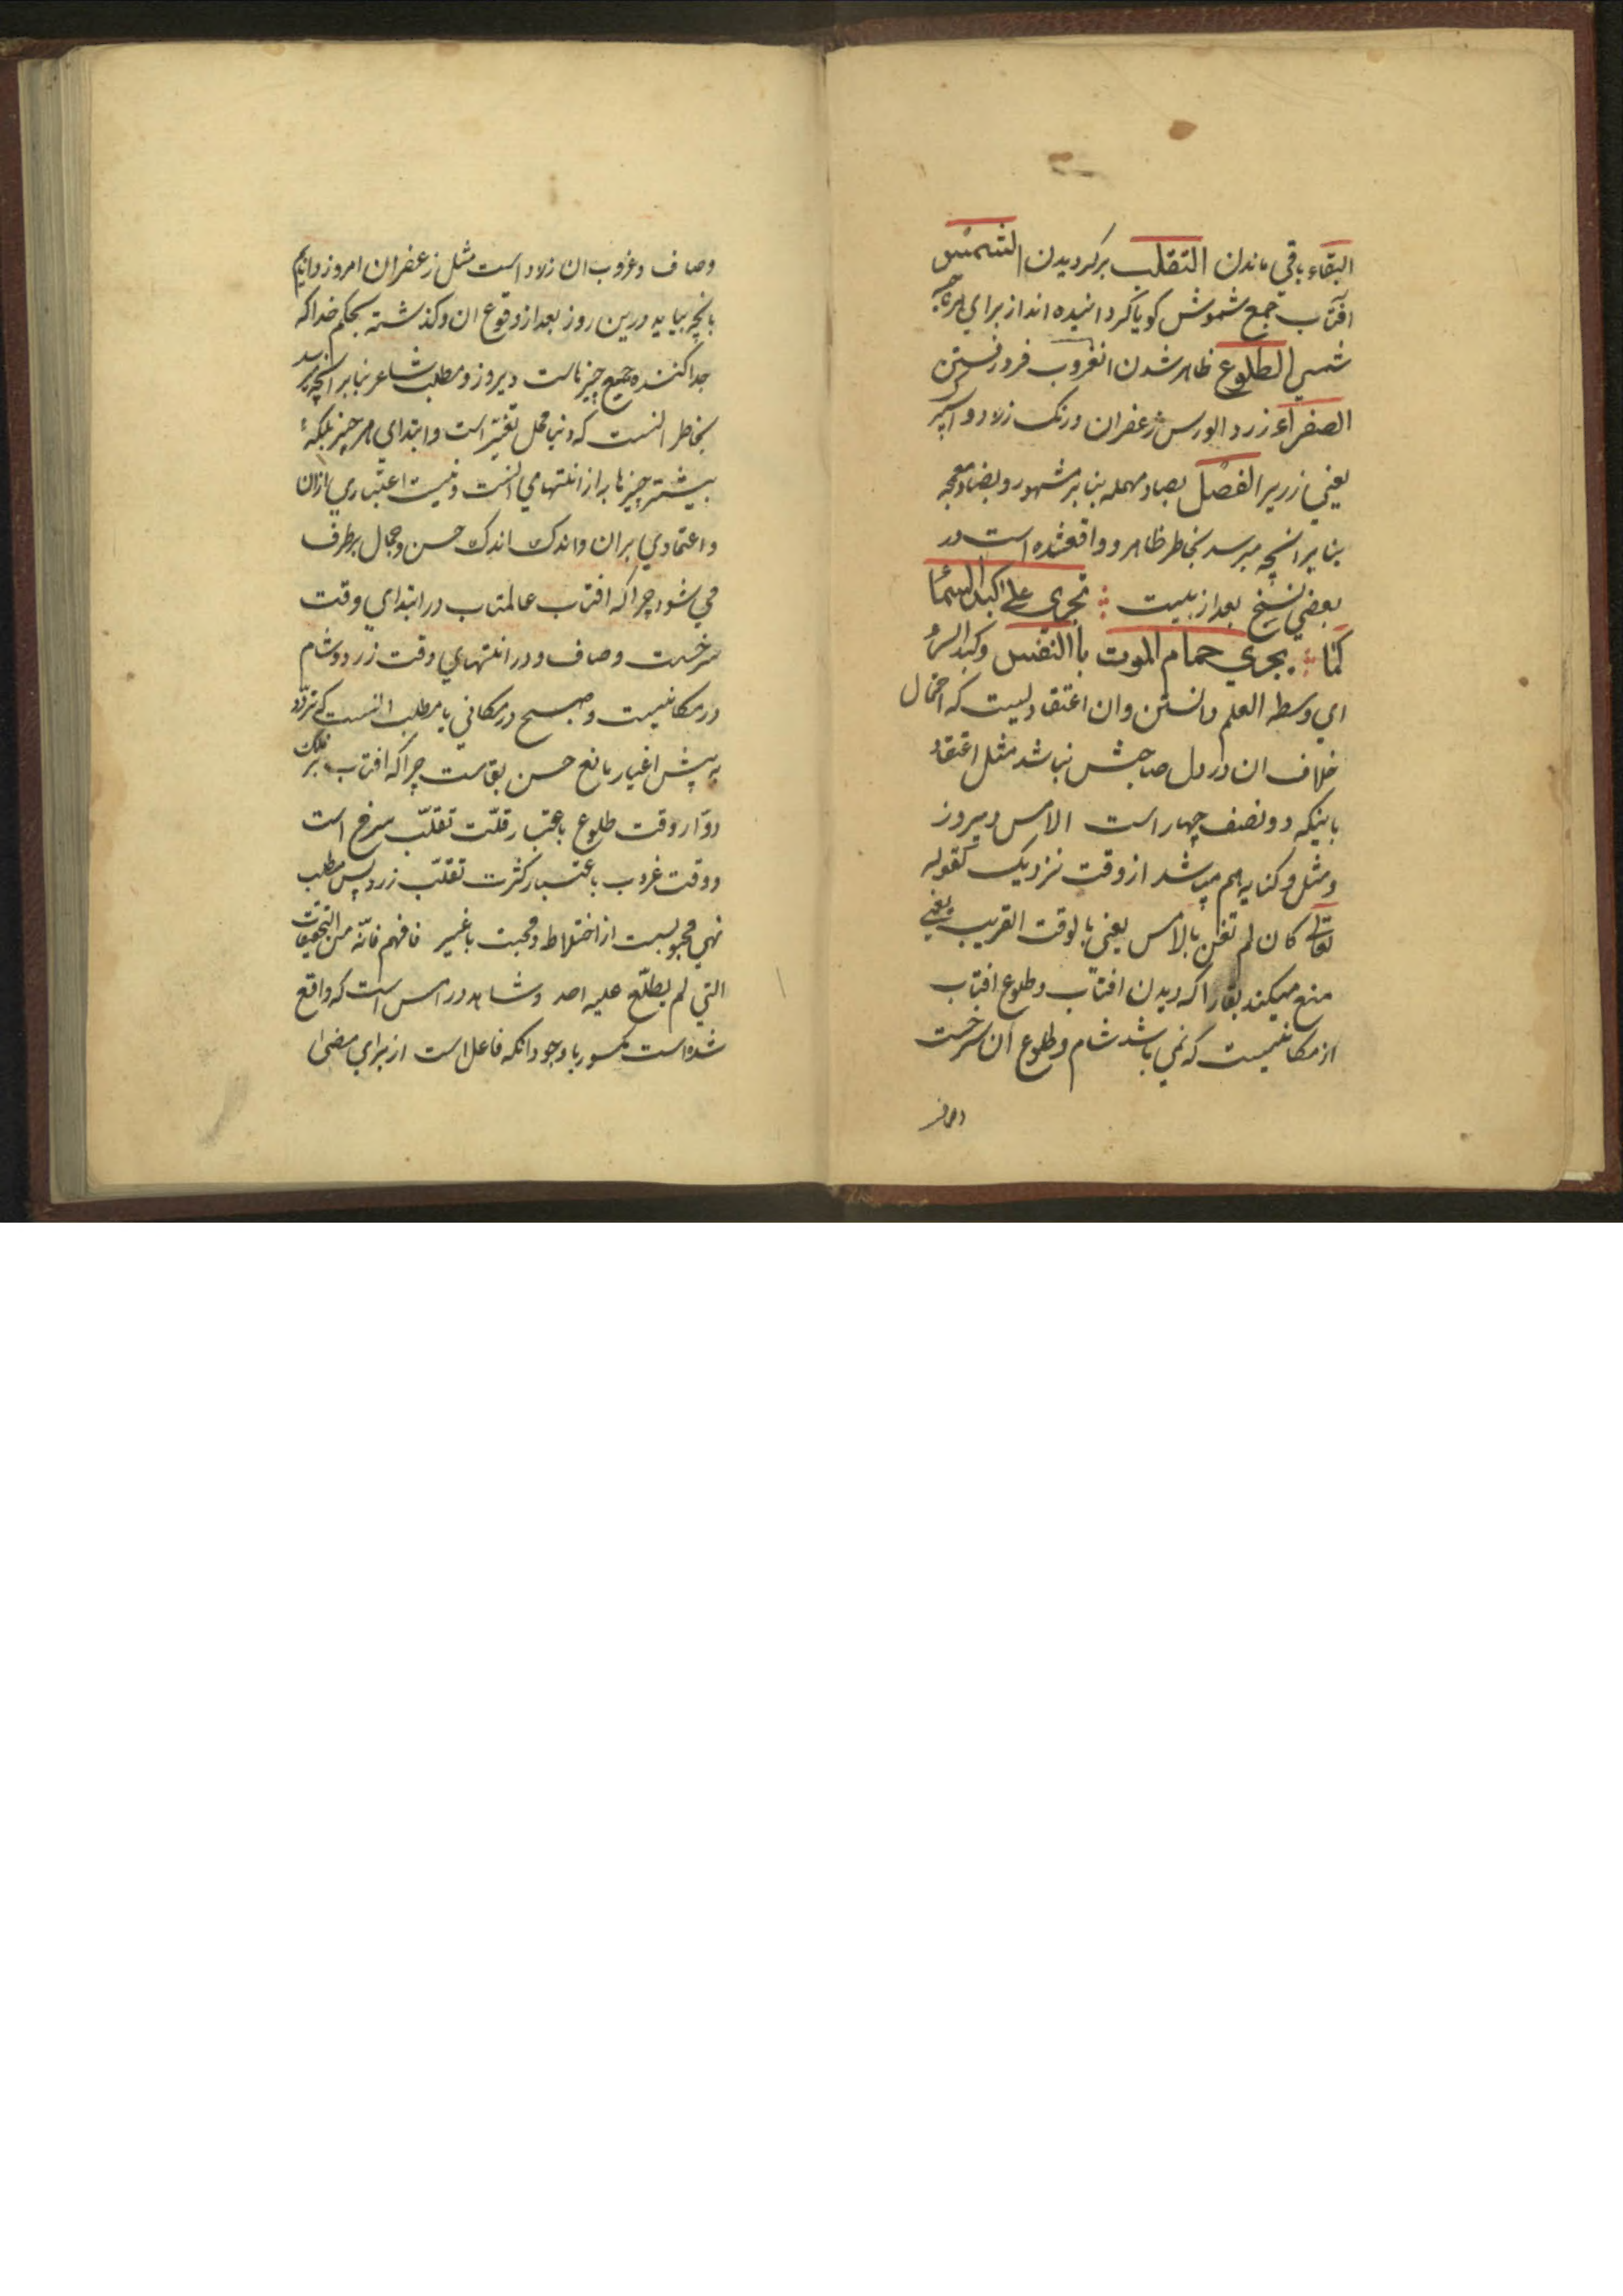 البقاء باقي ماندن التقلب برکردیدن الشمس
افتاب جمع شموش کویا کردانیده اند از برای هر ناحیه
شمسي الطلوع ظاهر شدن الغروب فرو رفستن
الصفراء زرد الورس زعفران و رنک زرد و اسپر
یعني زریر الفصل بصاد مهمله بنا بر مشهور و بضاد معجمه
بنا بر انچه میرسد بخاطر ظاهر و واقعشده است در
بعضي نسخ بعد از بیت تجري علی کبد السماء
کما یجري حمام الموت باالنفس و کبد السماء
اي وسطه العلم دانستن وان اعتقادیست که احتمال
خلاف ان در دل صاحبش نباشد مثل اعتقاد
باینکه دو نصف چهار است الامس دیروز
ومثل و کنایه هم میباشد از وقت نزدیک کقوله
تعالی کان لم تغن بالامس یعني بالوقت القریب یعني
منع میکند بقا را که دیدن افتاب وطلوع افتاب
از مکانیست که نمي باشد شام وطلوع ان سرخست
وصاف
وصاف وغروب ان زرد است مثل زعفران امروز دانایم
بانچه بیاید درین روز بعد از وقوع ان وکذشته بحکم خدا که
جدا کننده جمیع چیزهاست دیروز و مطلب شاعر بنا بر انچه میرسد
بخاطر انست که دنیا محل تغیر است و ابتداي هر چیز بلکه
بیشتر چیزها به از انتهاي انست ونیست اعتباري ازان
واعتمادي بران واندک اندک حسن وجمال برطرف
می شود چرا که افتاب عالمتاب در ابتداي وقت
سرخست وصاف و در انتهاي وقت زرد وشام
در مکانیست وصبح در مکاني یا مطلب انست که تردد
به پیش اغیار مانع حسن بقاست چرا که افتاب فلک
دوار وقت طلوع باعتبار قلت تقلب سرخ است
و وقت غروب باعتبار کثرت تقلب زرد پس مطلب
نهي محبوبست از اختلاط ومحبت باغیر فافهم فانه من التحقیقات
التي لم یطلع علیه احد وشاهد در امس است که واقع
شده است مکسور با وجود انکه فاعل است از براي مضی